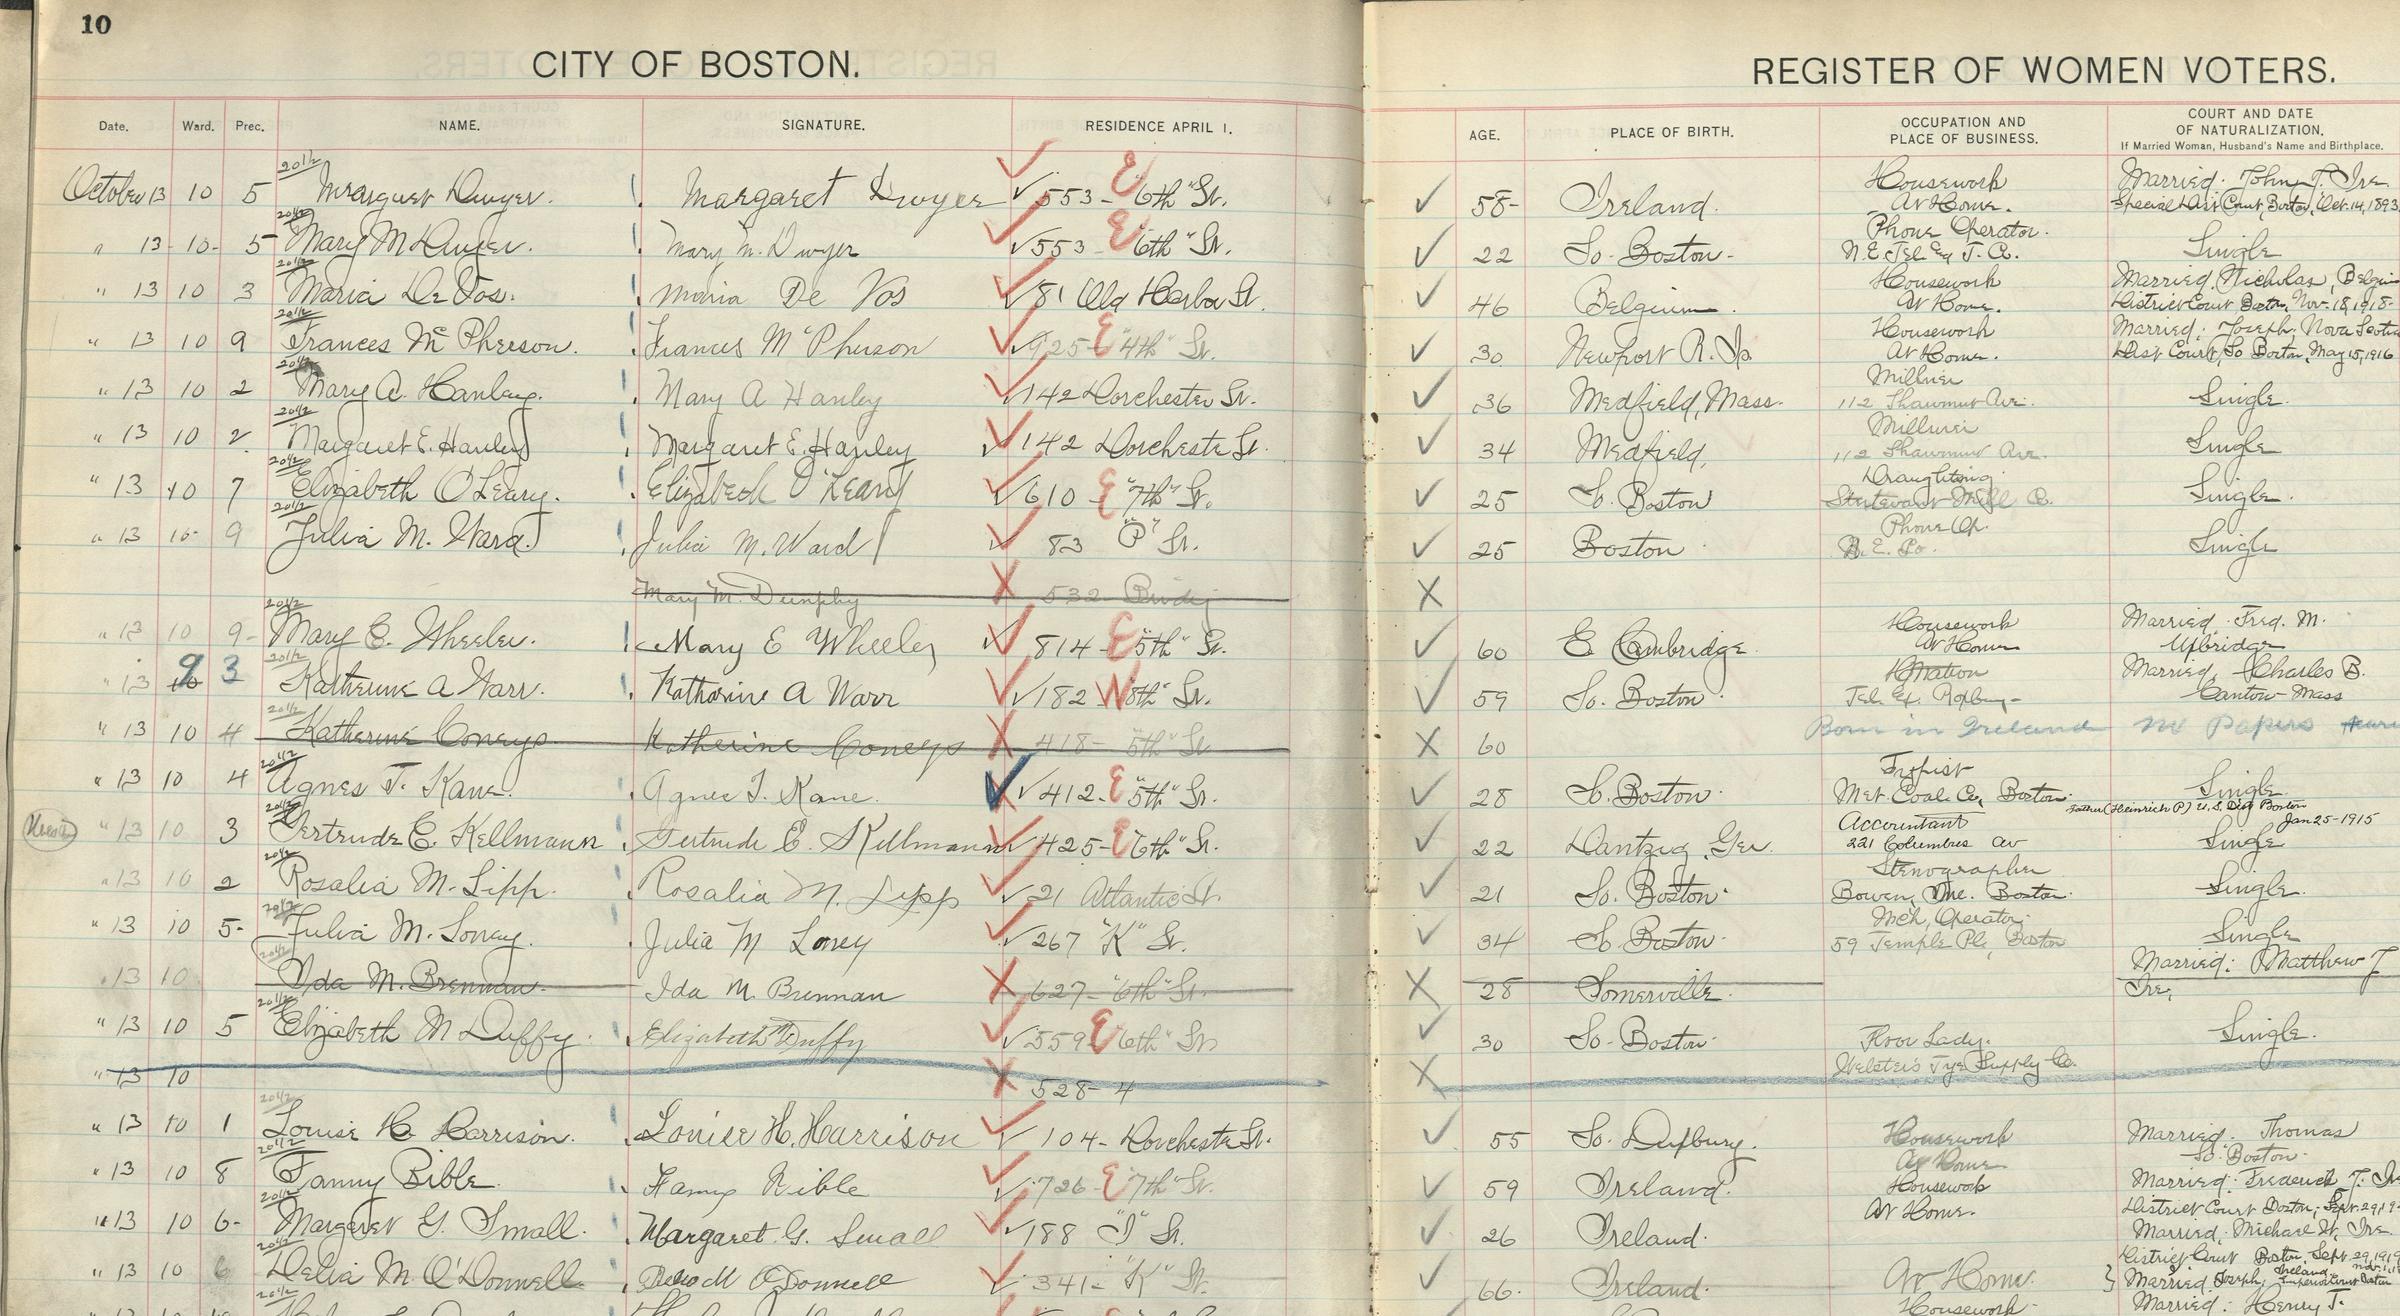 10
CITY OF BOSTON.
REGISTER OF WOMEN VOTERS.
Date. Ward. Prec. NAME. SIGNATURE. RESIDENCE APRIL 1. AGE. PLACE OF BIRTH. OCCUPATION AND PLACE OF BUSINESS. COURT AND DATE OF NATURALIZATION. If Married Woman, Husband's Name and Birthplace.
October 13 10 5 Margaret Dwyer. Margaret Dwyer 553 - E "6th" St. 58 - Ireland. Housework At Home. Married: John T. Ire. Special Dist Court, Boston, Oct. 14, 1893
" 13 - 10 - 5 Mary M Dwyer. Mary M. Dwyer 553 E "6th" St. 22 So. Boston - Phone Operator. N.E. Tel Eq T. Co. Single
" 13 10 3 Maria De Vos. Maria De Vos 81 Old Harbor St. 46 Belgium. Housework At Home. Married, Nicholas, Belgiu District Court Boston, Nov. 18, 1918 -
" 13 10 9 Frances McPherson. Frances McPherson 925 - E "4th" St. 30 Newport R.I. Housework At Home. Married: Joseph, Nova Scotia Dist Court, So Boston, May 15, 1916
" 13 10 2 Mary A. Hanley. Mary A Hanley 142 Dorchester St. 36 Medfield, Mass. Milliner 112 Shawmut Ave. Single.
" 13 10 2 Margaret E. Hanley Margaret E. Hanley 142 Dorchester St. 34 Medfield, Milliner 112 Shawmut Ave. Single
" 13 10 7 Elizabeth O'Leary. Elizabeth O'Leary 610 E "7th" St. 25 So. Boston Draughting Co. Single.
" 13 10 - 9 Julia M. Ward. Julia M. Ward 83 "P" St. 25 Boston Phone Op. Single
Mary M. Dunphy 532
" 13 10 9 - Mary E. Wheeler. Mary E Wheeler 814 - E "5th" St. 60 E Cambridge Housework At Home Married. Fred. M. Uxbridge
" 13 10 9 3 Katherine A Warr. Katherine A Warr 182 W "8th" St. 59 So. Boston Matron Tel. Ex. Roxbury - Married, Charles B. Canton - Mass
" 13 10 4 Katherine Coneys Katherine Coneys 418 - 5th St 60 Born in Ireland no Papers
" 13 10 4 Agnes T. Kane. Agnes T. Kane. 412 - E "5th" St. 28 So. Boston Typist Met. Coal Co., Boston. Single
" 13 10 3 Gertrude E. Kellmann Gertrude E. Kellmann 425 - E "6th" St. 22 Dantzig, Ger. Accountant 221 Columbus av Father (Heinrich P) U.S. Dist Boston Jan 25 - 1915 Single
" 13 10 2 Rosalia M. Lipp. Rosalia M. Lipp 21 Atlantic St. 21 So. Boston. Stenographer Boston. Single.
" 13 10 5 - Julia M. Loney. Julia M Loney 267 "K" St. 34 So Boston. Operator. 59 Temple Pl, Boston Single
" 13 10 Ida M. Brennan. Ida M. Brennan 627 - "6th" St. 28 Somerville. Married: Matthew J Ire,
" 13 10 5 Elizabeth M Duffy. Elizabeth M Duffy 559 E "6th" St. 30 So - Boston. Floor Lady. Supply Co. Single.
" 13 10 528 - 4
" 13 10 1 Louise H. Harrison. Louise H. Harrison 104 - Dorchester St. 55 So. Duxbury. Housework At Home Married. Thomas So. Boston.
" 13 10 8 Fanny Bible. Fanny Bible 726 - E "7th" St. 59 Ireland. Housework At Home. Married. Frederick T. Ire District Court Boston, Sept. 29, 19
" 13 10 6 - Margaret G. Small. Margaret G. Small 188 "I" St. 26 Ireland. Married, Michael Ire. District Court Boston, Sept. 29, 1919
" 13 10 6 Delia M. O'Donnell Delia M O'Donnell 341 - "K" St. 66. Ireland. At Home. Married. Joseph, Ireland
Housework Married: Henry T.